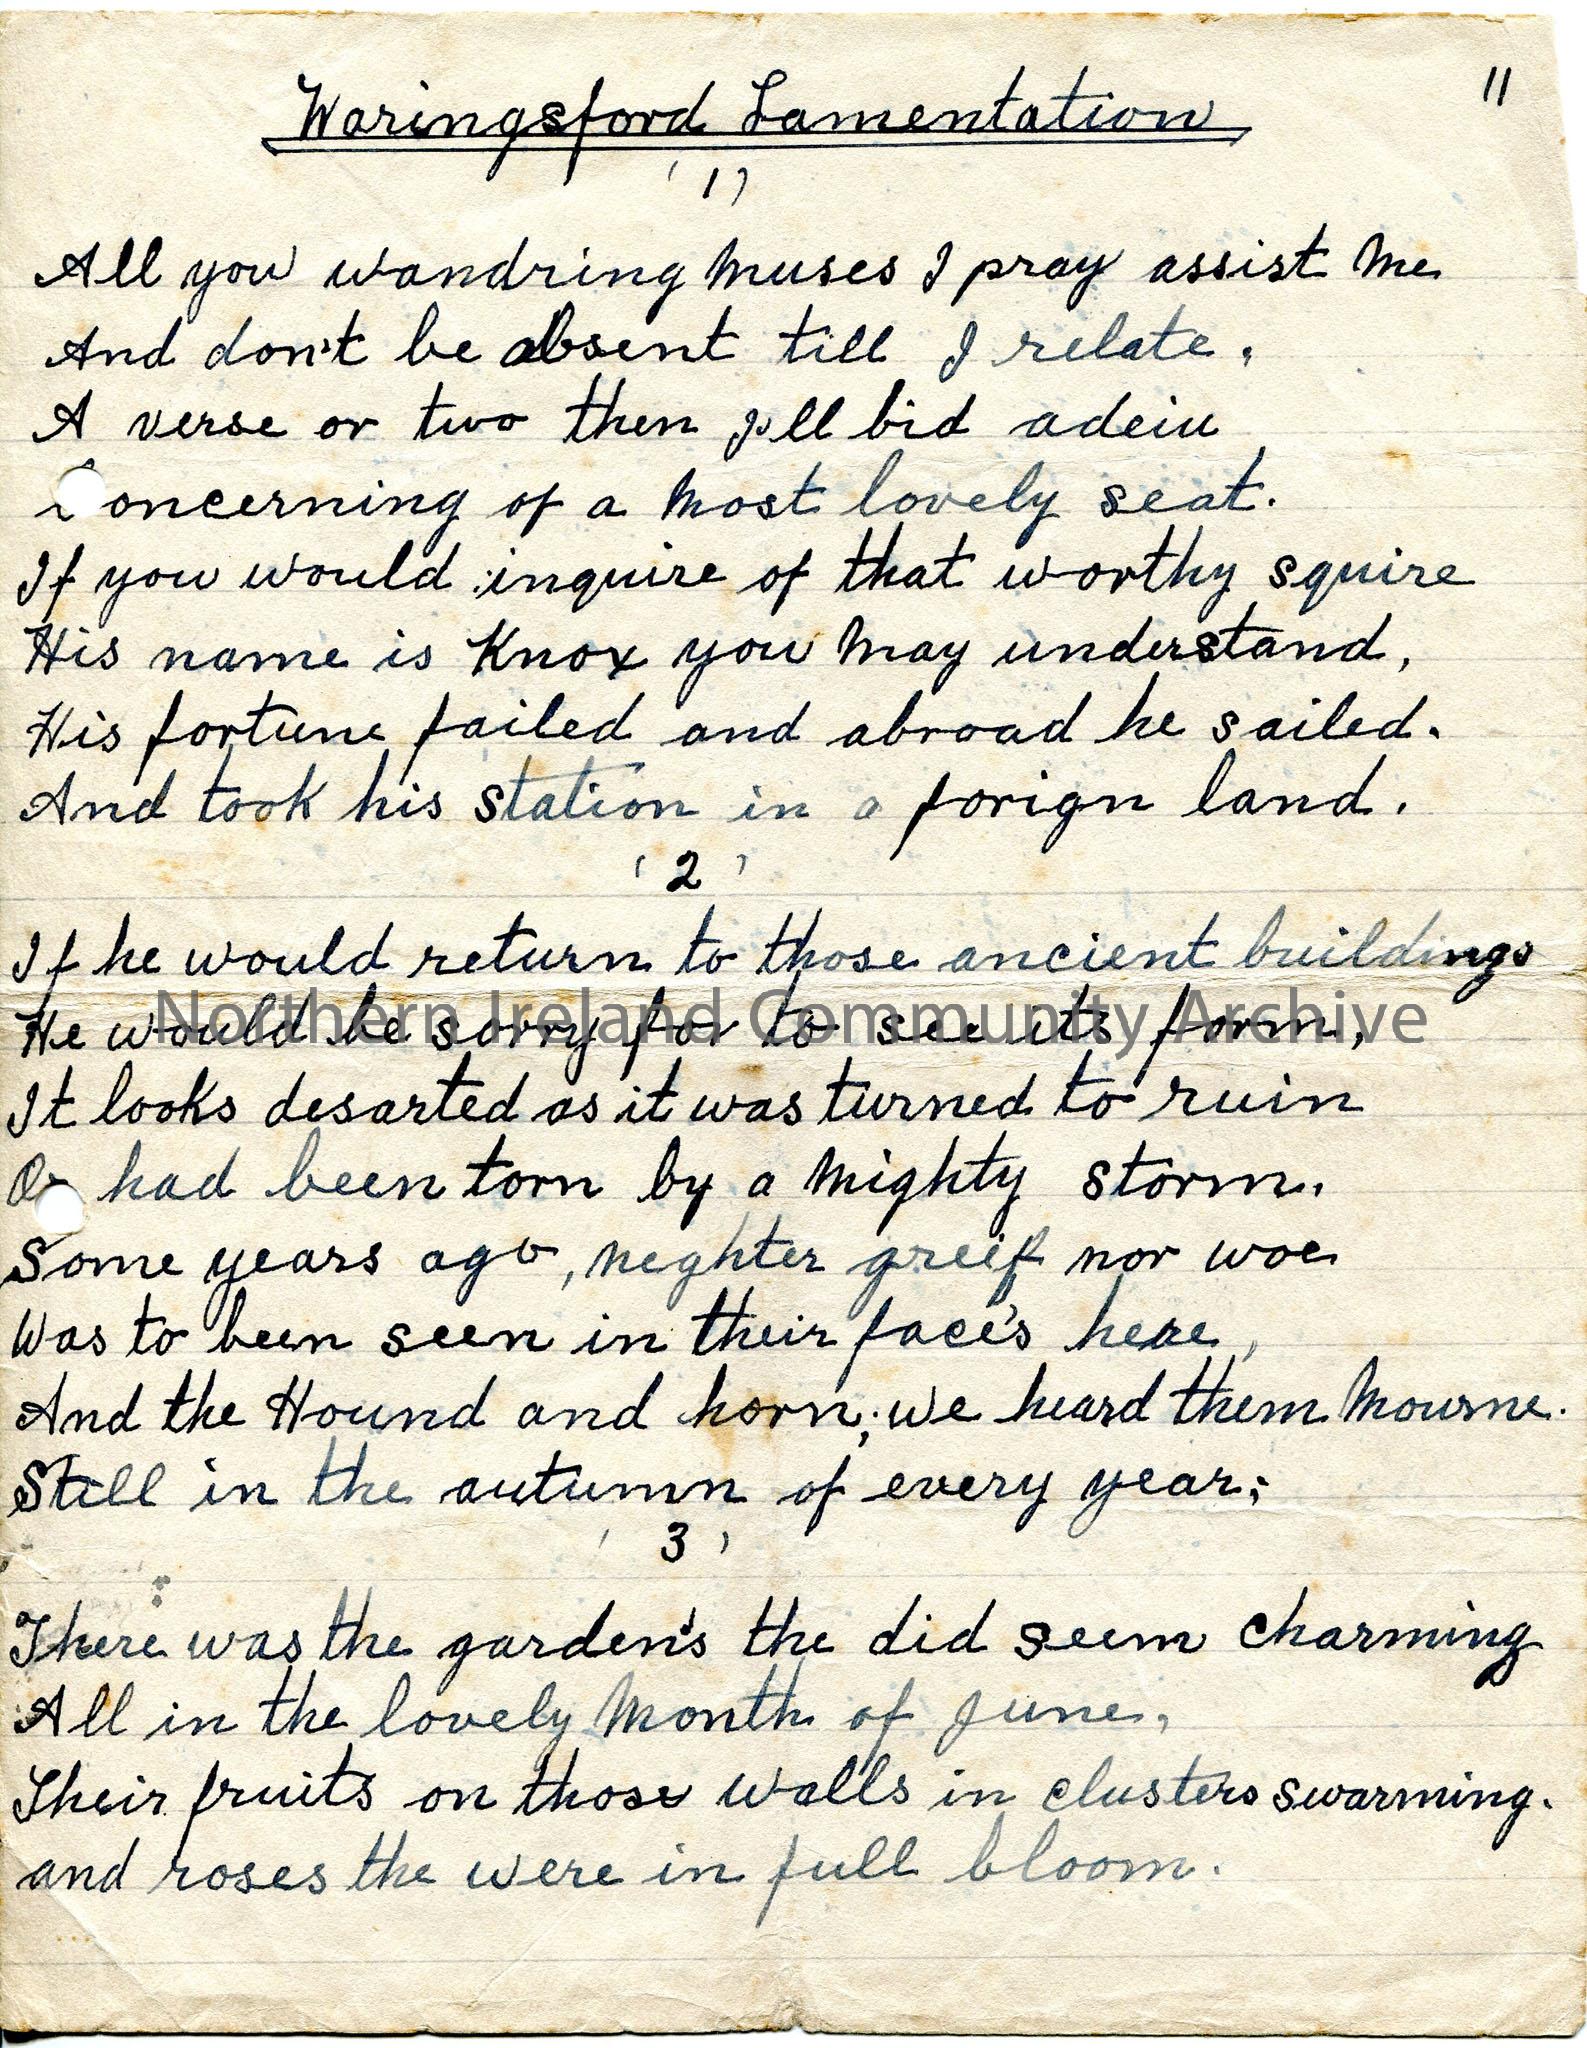 11
Waringsford Lamentation
(1)
All you wandring Muses I pray assist Me
And don't be absent till I relate,
A verse or two then I'll bid adeiu
Concerning of a Most lovely seat.
If you would inquire of that worthy squire
His name is Knox you May understand,
His fortune failed and abroad he sailed.
And took his station in a forign land.
(2)
If he would return to those ancient buildings
He would be sorry for to see its form,
Northern Ireland Community Archive
It looks desarted as it was turned to ruin
Or had been torn by a Mighty storm.
Some years ago, neghter greif nor woe
Was to been seen in their face's here,
And the Hound and horn, we heard them Mourne.
Still in the autumn of every year;
(3)
There was the garden's the did seem charming
All in the lovely Month of June,
Their fruits on those walls in clusters swarming.
and roses the were in full bloom.